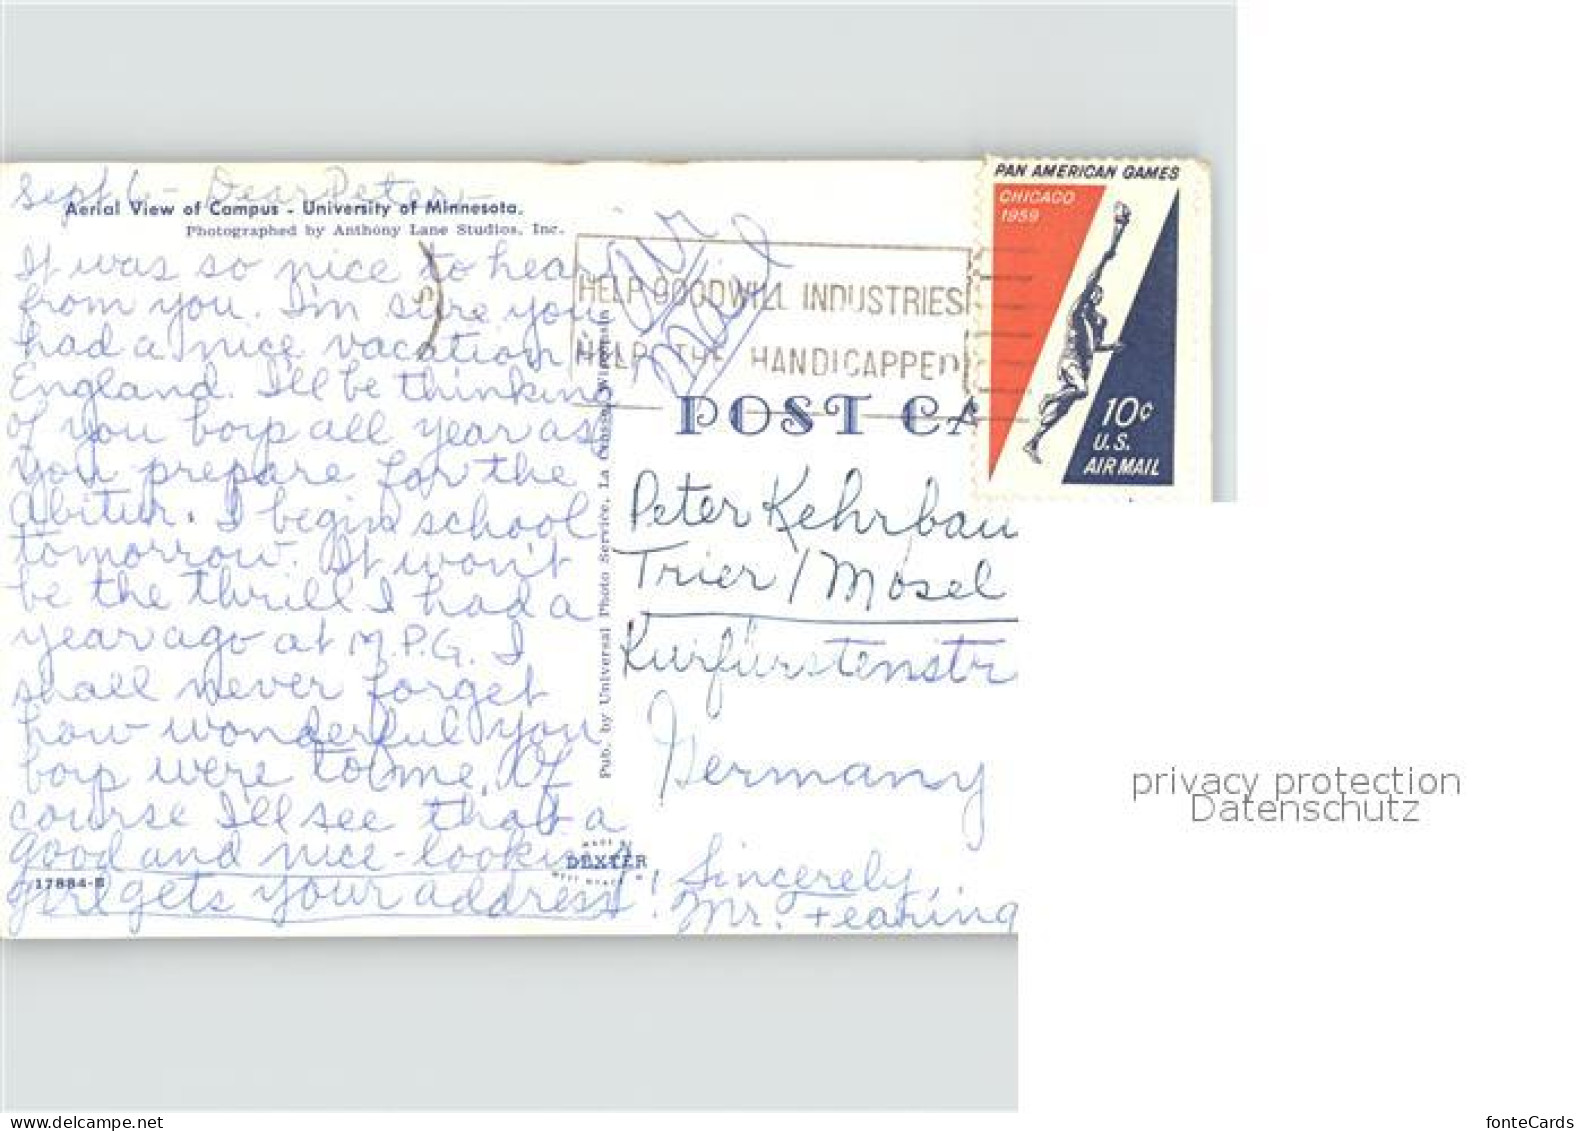 Sept 6 - Dear Peter,
Aerial View of Campus - University of Minnesota.
Photographed by Anthony Lane Studios, Inc.
It was so nice to hear
from you. I'm sure you
had a nice vacation in
England. I'll be thinking
of you boys all year as
you prepare for the
Abitur. I begin school
tomorrow. It won't
be the thrill I had a
year ago at M.P.G. I
shall never forget
how wonderful you
boys were to me. Of
course I'll see that a
good and nice-looking
girl gets your address!
17884-B
Pub. by Universal Photo Service, La Crosse, Wisconsin
MADE BY
DEXTER
WEST NYACK
Air
Mail
HELP GOODWILL INDUSTRIES
HELP THE HANDICAPPED
PAN AMERICAN GAMES
CHICAGO
1959
10¢
U.S.
AIR MAIL
POST CA
Peter Kehrbau
Trier / Mosel
Kurfürstenstr
Germany
Sincerely,
Mr. Fearing
privacy protection
Datenschutz
delcampe.net
fonteCards